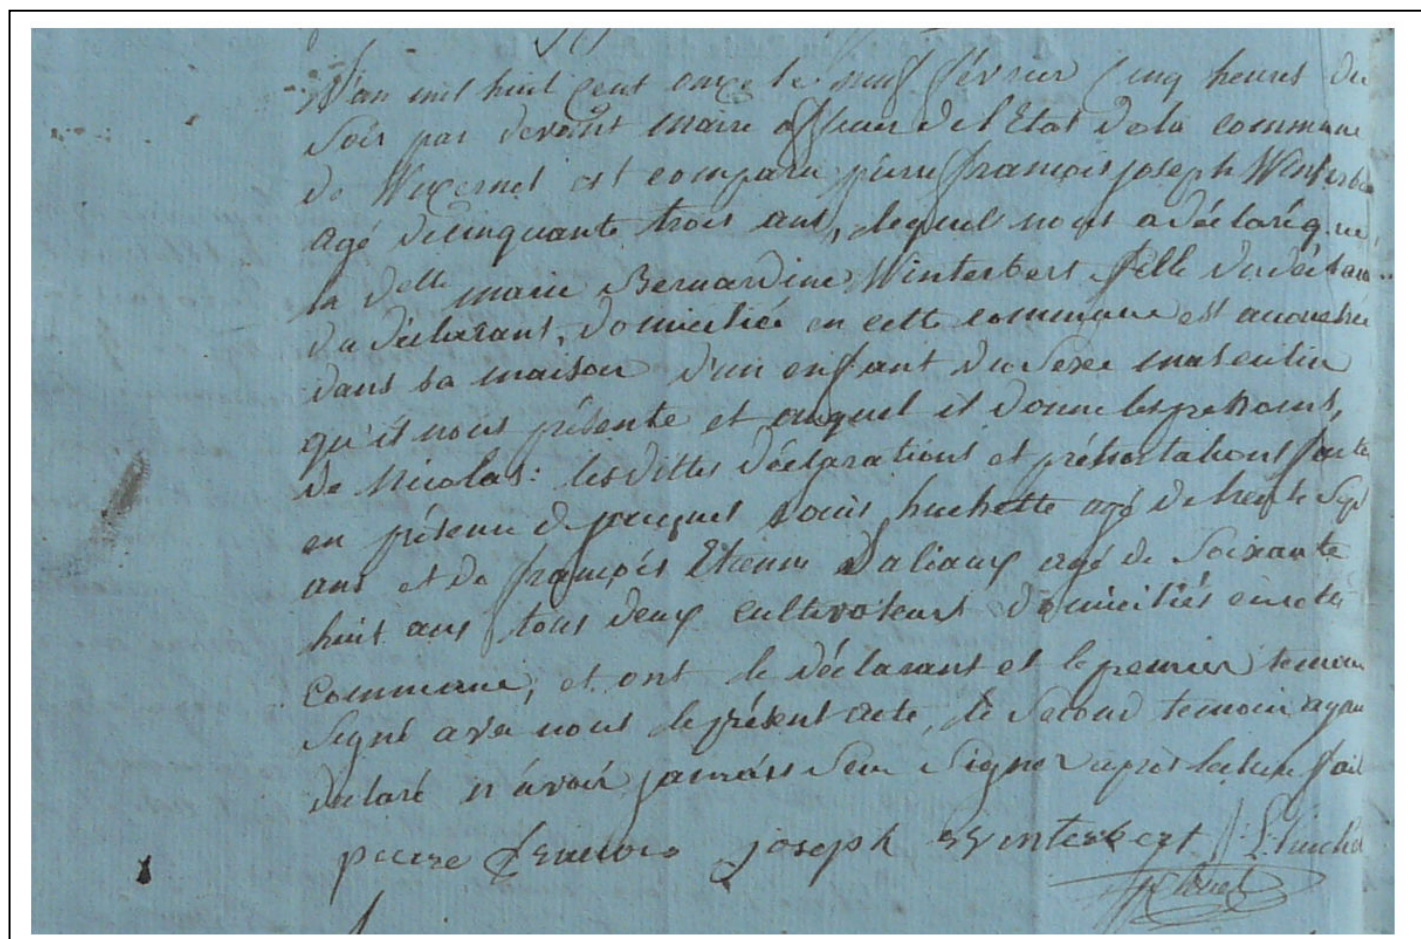 L'an mil huit cent onze le neuf février cinq heures du
soir par devant maire officier de l'Etat de la commune
de Wizernes est comparu pierre françois joseph Winterbe
agé de cinquante trois ans, lequel nous a déclaré que
la delle marie Bernardine Winterbert fille du déclaran
du déclarant, domiciliée en cette commune est accouchée
dans sa maison d'un enfant du sexe masculin
qu'il nous présente et auquel il donne les prenoms,
de Nicolas: lesdittes déclarations et présentations faites
en présence de jacques Louis huchette agé de trente sept
ans et de françois Etienne Daliaux agé de soixante
huit ans tous deux cultivateurs domiciliés en cette
commune, et ont le déclarant et le premier temoin
signé avec nous le présent acte, le second temoin ayan
declaré n'avoir jamais seu signer après lecture fait
pierre francois joseph Winterbert L. huchet